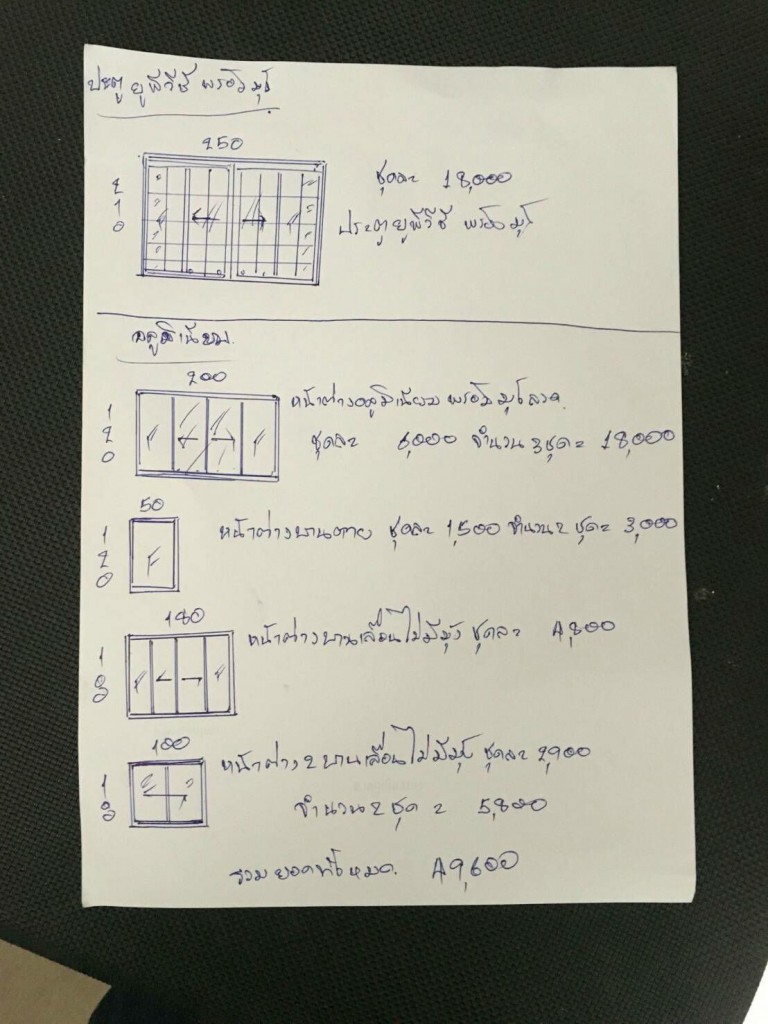 ประตู ยูพีวีซี พร้อมมุ้ง
250
ชุดละ 18,000
210
ประตูยูพีวีซี พร้อมมุ้ง
อลูมิเนียม
200
หน้าต่างอลูมิเนียม พร้อมมุ้งลวด
120
ชุดละ 6,000 จำนวน 3 ชุด = 18,000
50
หน้าต่างบานตาย ชุดละ 1,500 จำนวน 2 ชุด = 3,000
120
180
หน้าต่างบานเลื่อนไม่มีมุ้ง ชุดละ 4,800
100
หน้าต่าง 2 บานเลื่อนไม่มีมุ้ง ชุดละ 2,900
จำนวน 2 ชุด = 5,800
รวมยอดทั้งหมด 49,600